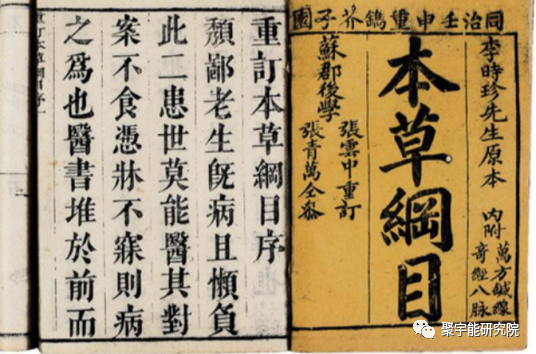 同治壬申重鐫芥子園
李時珍先生原本
內附
萬方鍼線
奇經八脉
本草綱目
蘇郡後學
張雲中重訂
張青萬仝參
重訂本草綱目序
頽鄙老生旣病且懶負
此二患世莫能醫其對
案不食憑牀不寐則病
之爲也醫書堆於前而
重訂本草綱目序一
聚宇能研究院